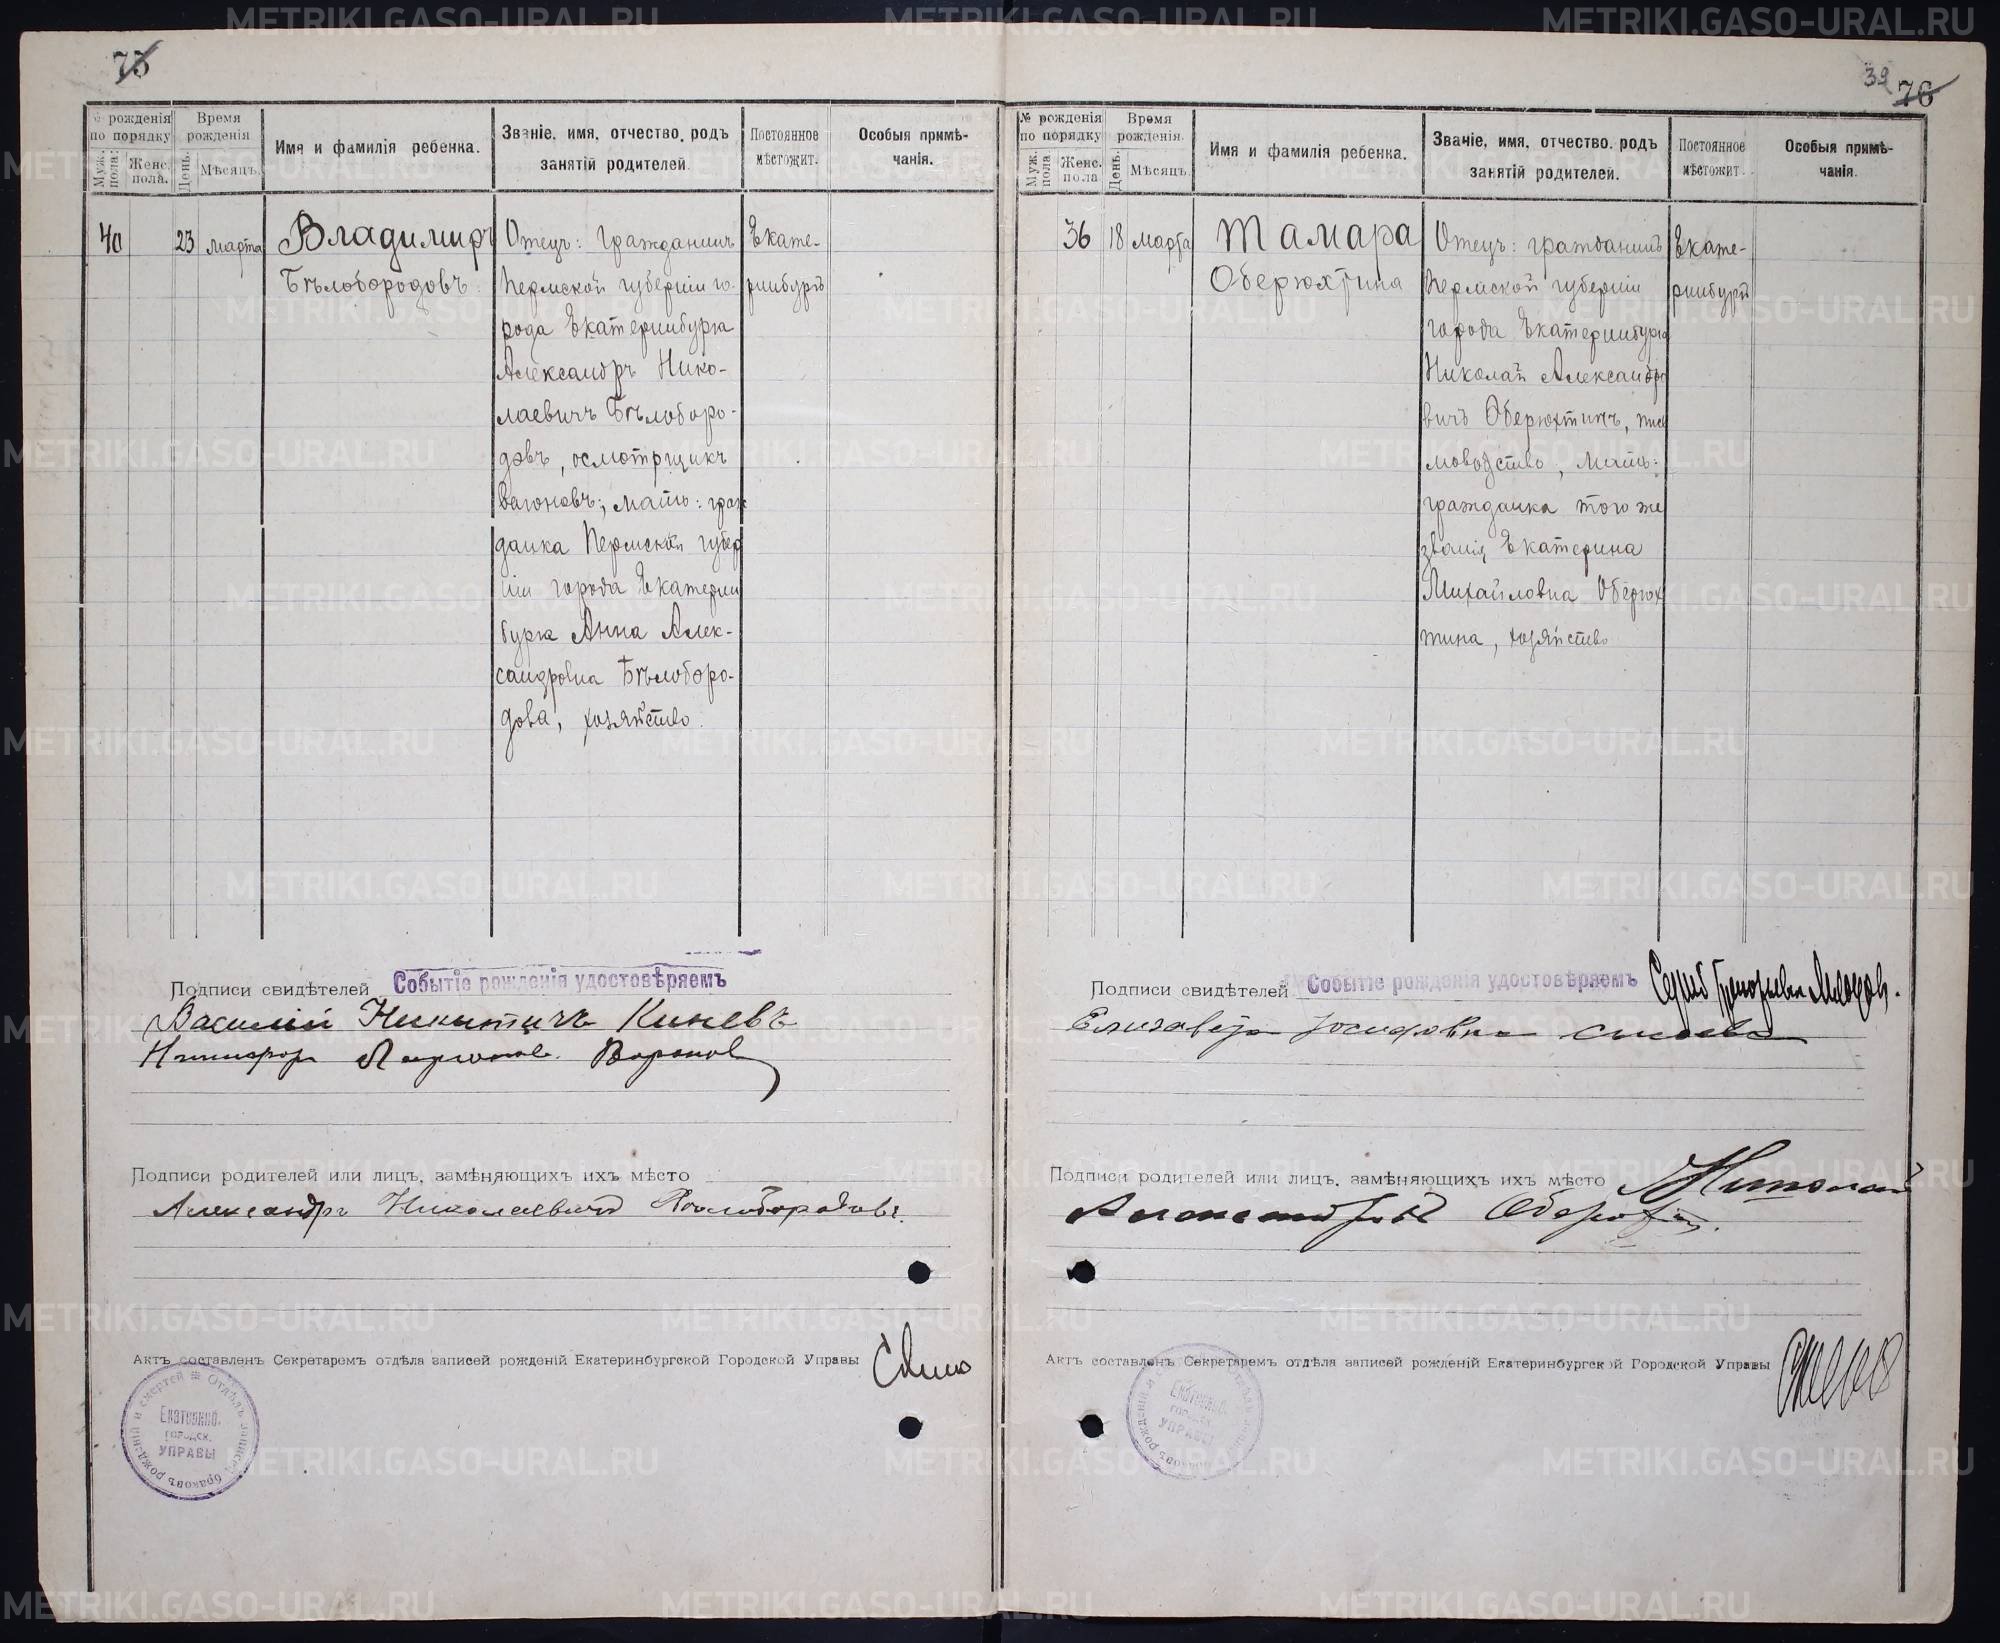 75
№ рожденія по порядку
Муж. пола.
Женс. пола.
Время рожденія
День.
Мѣсяцъ.
Имя и фамилія ребенка.
Званіе, имя, отчество, родъ
занятій родителей.
Постоянное
мѣстожит.
Особыя примѣ-
чанія.
40
23 марта
Владимиръ
Бѣлобородовъ
Отецъ: гражданинъ
Пермской губерніи го-
рода Екатеринбурга
Александръ Нико-
лаевичъ Бѣлоборо-
довъ, осмотрщикъ
вагоновъ; мать: граж
данка Пермской губер
ніи города Екатерин
бурга Анна Алек-
сандровна Бѣлоборо-
дова, хозяйство.
Екате-
ринбургъ
Подписи свидѣтелей
Событіе рожденія удостовѣряемъ
Василій Никитичъ Киневъ
Воронов
Подписи родителей или лицъ, замѣняющихъ ихъ мѣсто
Александръ Николаевичъ Бѣлобородовъ.
Актъ составленъ Секретаремъ отдѣла записей рожденій Екатеринбургской Городской Управы
Отдѣлъ записи браковъ рожденій и смертей
Екатеринб.
городск.
УПРАВЫ
39
76
№ рожденія по порядку
Муж. пола
Женс. пола
Время рожденія.
День.
Мѣсяцъ.
Имя и фамилія ребенка.
Званіе, имя, отчество, родъ
занятій родителей.
Постоянное
мѣстожит.
Особыя примѣ-
чанія.
36
18 марта
Тамара
Оберюхтина
Отецъ: гражданинъ
Пермской губерніи
города Екатеринбурга
Николай Александро
вичъ Оберюхтинъ, пись
моводство, мать:
гражданка того же
званія Екатерина
Михайловна Оберюх
тина, хозяйство
Екате-
ринбургъ
Подписи свидѣтелей
Событіе рожденія удостовѣряемъ
Сергей
Елизавета Иосифовна
Подписи родителей или лицъ, замѣняющихъ ихъ мѣсто
Николай
Актъ составленъ Секретаремъ отдѣла записей рожденій Екатеринбургской Городской Управы
Екатеринб.
городск.
УПРАВЫ
METRIKI.GASO-URAL.RU